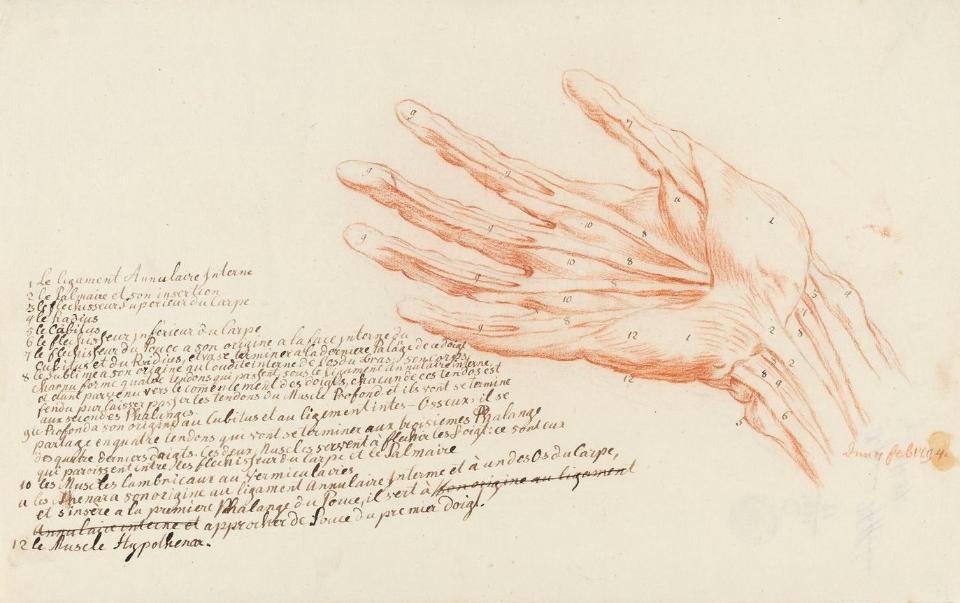 1 Le ligament Annulaire Interne
2 le Palmaire et son insertion
3 le flechisseur Superieur du Carpe
4 le Radius
5 le Cubitus
6 le flechisseur inferieur du Carpe
7 le flechisseur du Pouce a son origine a la face interne du
Cubitus et du Radius, et va se terminer a la derniere Phalange de ce doigt
8 le Sublime a son origine au Condile interne de l'os du bras, son corps
charnu forme quatre tendons qui passent sous le ligament annulaire interne,
et etant parvenu vers le comencement des doigts, chacun de ces tendons est
fendu pur laisser passer les tendons du Muscle Profond et ils vont se termine
aux secondes Phalanges.
9 le Profond a son origine au Cubitus et au ligement inter-Osseux, il se
partage en quatre tendons qui vont se terminer aux troisiemes Phalange
des quatre derniers doigts. Ces deux Muscles servent à flechir les Doigt: ce sont eux
qui paroissent entre les flechisseur du carpe et le Palmaire
10 les Muscles lambricaux au Vermiculaires
a les Thenar a son origine au ligament Annulaire Interne et à un des Os du Carpe,
et s'insere a la premiere Phalange du Pouce, il sert à son origine au ligament
Annulaire interne et approcher de Pouce du premier doigt.
12 le Muscle Hypothenar.
9
9
9
9
9
7
a
1
10
8
10
8
10
8
12
1
12
2
3
4
8
3
2
8
9
6
5